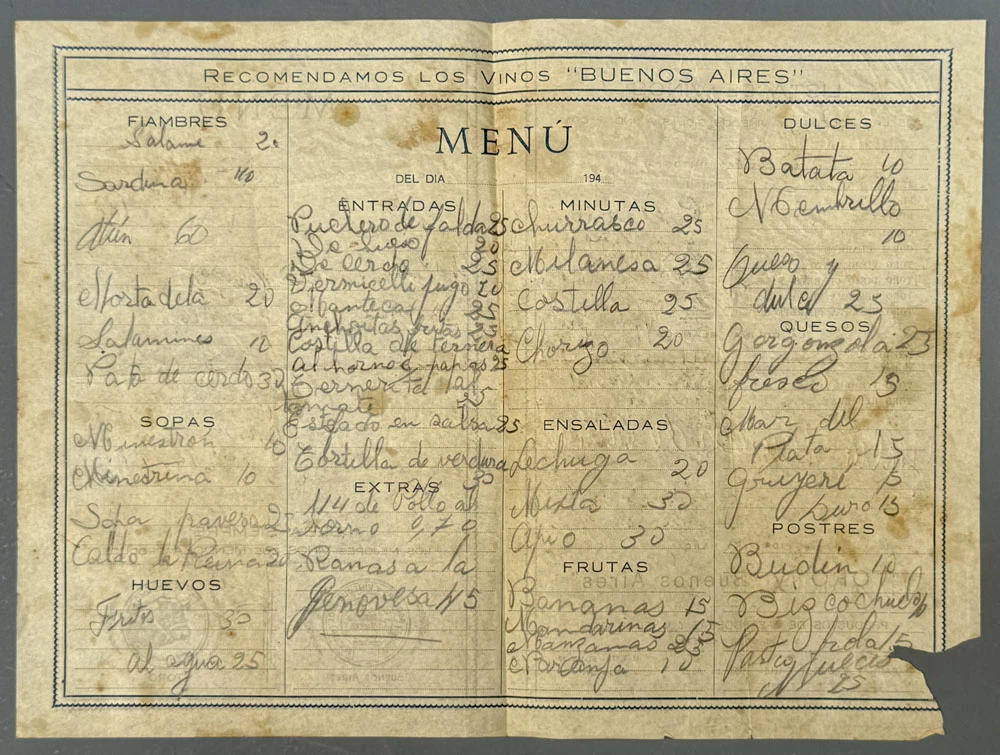 RECOMENDAMOS LOS VINOS "BUENOS AIRES"
MENÚ
DEL DIA 194
FIAMBRES
Salame 20
Sardina 40
Atún 60
Mortadela 20
Salamines 10
Pata de cerdo 30
SOPAS
Minestron 10
Minestrina 10
Sopa pavesa 25
Caldo la Reina 20
HUEVOS
Fritos 30
al agua 25
ENTRADAS
Puchero de falda 25
De 20
De cerdo 25
Vermicelli jugo 20
Manteca 25
Anchoitas 25
Costilla de ternera
al horno c papas 25
Ternerita al
tomate 25
Estofado en salsa 25
Tortilla de verdura
30
EXTRAS
1/4 de Pollo al
horno 0,70
Ranas a la
Genovesa 45
MINUTAS
Churrasco 25
Milanesa 25
Costilla 25
Chorizo 20
ENSALADAS
Lechuga 20
Mixta 30
Apio 30
FRUTAS
Bananas 15
Mandarinas 15
Manzanas 25
Naranja 10
DULCES
Batata 10
Membrillo
10
Queso y
dulce 25
QUESOS
Gorgonzola 25
fresco 15
Mar del
Plata 15
Gruyeri 15
Duro 15
POSTRES
Budin 10
Biscochuelo
Pasta frola 15
dulces
25